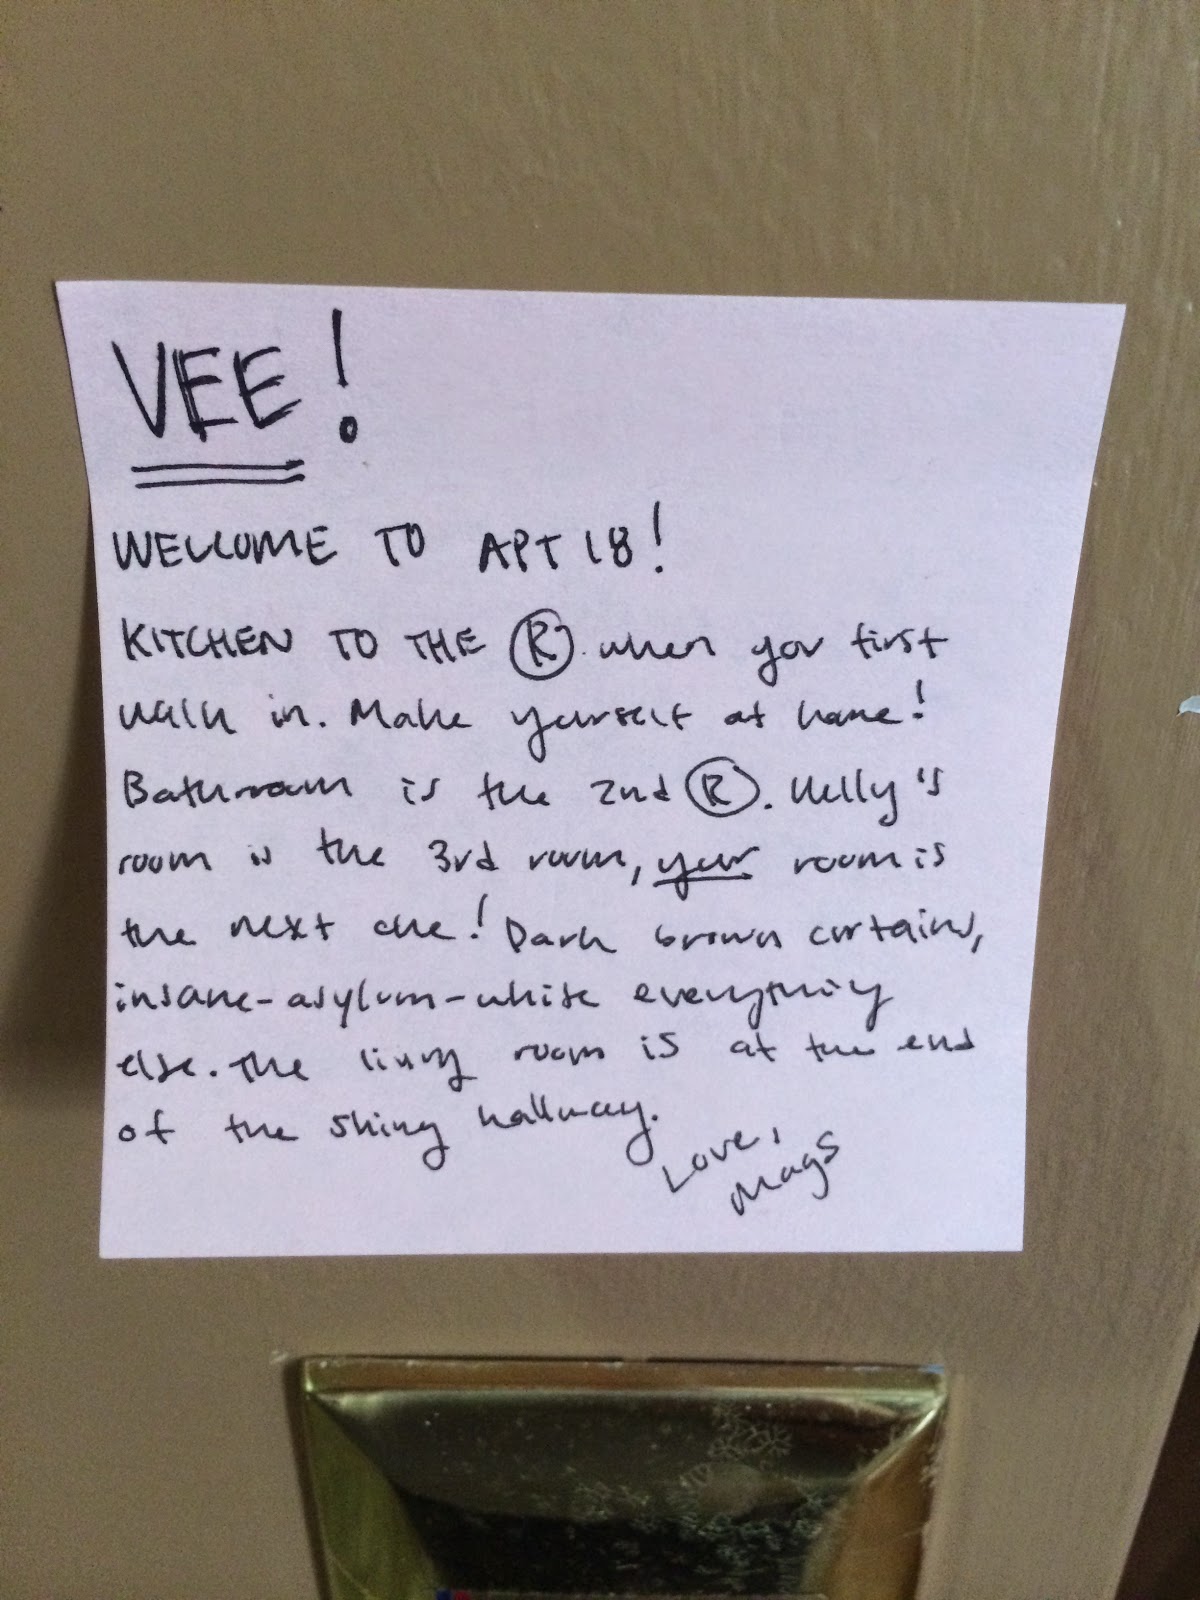 VEE!
WELCOME TO APT 18!
KITCHEN TO THE Ⓡ when you first
walk in. Make yourself at home!
Bathroom is the 2nd Ⓡ. Kelly's
room is the 3rd room, your room is
the next one! Dark brown curtains,
insane-asylum-white everything
else. The living room is at the end
of the shiny hallway.
Love,
Mags